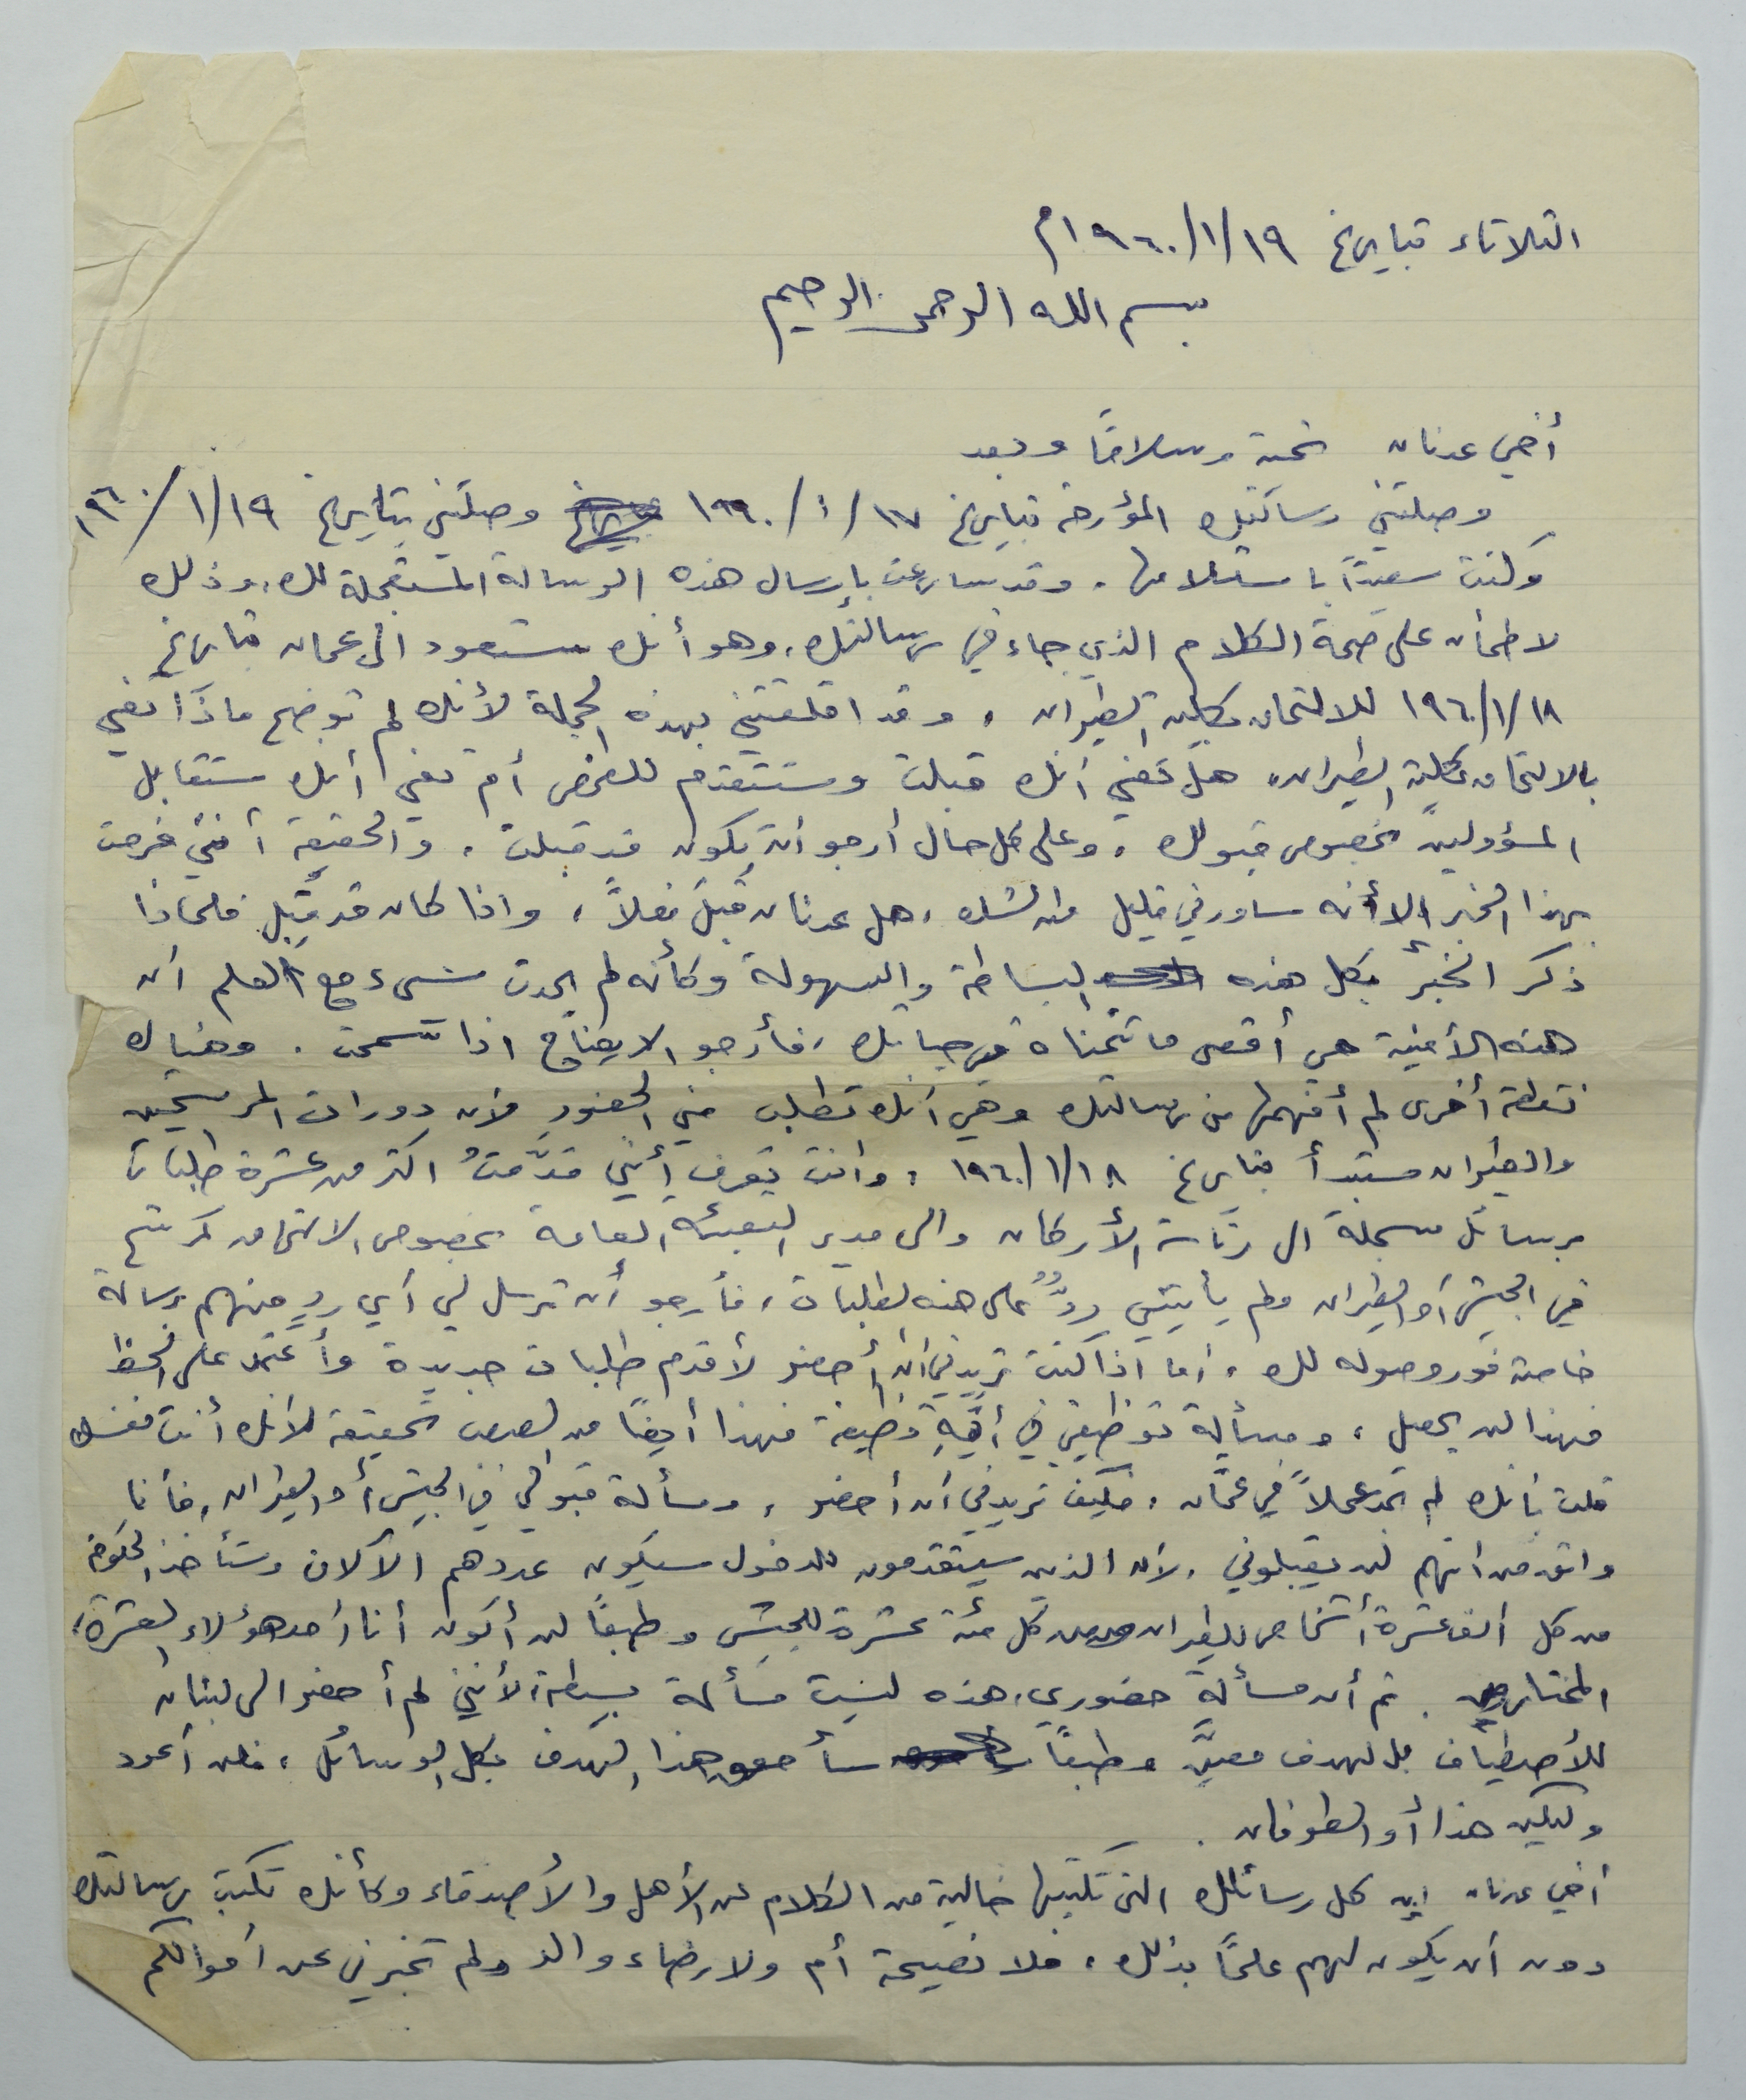 الثلاثاء بتاريخ ١٩/١/١٩٦٠م
بسم الله الرحمن الرحيم
أخي عدنان تحية وسلاماً وبعد
وصلتني رسالتك المؤرخة بتاريخ ١٧/١/١٩٦٠ وصلتني بتاريخ ١٩/١/١٩٦٠
وكنت سعيداً باستلامها. وقد سارعت بإرسال هذه الرسالة المستعجلة لك، وذلك
لاطمأن على صحة الكلام الذي جاء في رسالتك، وهو أنك ستعود الى عمان بتاريخ
١٨/١/١٩٦٠ للالتحاق بكلية الطيران، وقد اقلقتني بهذه الجملة لأنك لم توضح ماذا تعني
بالالتحاق بكلية الطيران، هل تعني أنك قبلت وستتقدم للفحص أم تعني أنك ستقابل
المسؤولين بخصوص قبولك، وعلى كل حال أرجو أن يكون قد قبلت، والحقيقة أنني فرحت
بهذا الخبر إلا أنه ساورني قليل من الشك، هل عدنان قُبلَ فعلاً، واذا كان قد قُبِل فلماذا
ذكر الخبر بكل هذه البساطة والسهولة وكأنه لم يحدث شيء مع العلم أن
هذه الأمنية هي أقصى ما تتمناه في حياتك، فأرجو الايضاح اذا سمحت. وهناك
نقطة أخرى لم أفهمها من رسالتك وهي أنك تطلب مني الحضور لأن دورات المرشحين
والطيران ستبدأ بتاريخ ١٨/١/١٩٦٠، وانت تعرف أنني قدَّمتُ اكثر من عشرة طلبات
برسائل مسجلة الى رئاسة الأركان والى مدير التعبئة العامة بخصوص الالتحاق كمرشح
في الجيش أو الطيران ولم يأتيني ردٌّ على هذه الطلبات، فأرجو أن ترسل لي أي ردٍ منهم برسالة
خاصة فور وصوله لك، أما اذا كنت تريدني أن أحضر لأقدم طلبات جديدة وأعتمد على الحظ
فهذا لن يحصل، ومسألة توظيفي في أيّةِ وظيفة فهذا أيضاً من الصعب تحقيقه لأنك أنت نفسك
قلت بأنك لم تجد عملاً في عمّان، فكيف تريدني أن أحضر، ومسألة قبولي في الجيش أو الطيران، فأنا
واثق من انهم لن يقبلوني، لأن الذين سيتقدمون للدخول سيكون عددهم الآلاف وستأخذ الحكومة
من كل ألف عشرة أشخاص للطيران ومن كل مئة عشرة للجيش وطبعاً لن أكون أنا أحد هؤلاء العشرة،
المختارين. ثم أن مسألة حضوري، هذه ليست مسألة بسيطة، لأنني لم أحضر الى لبنان
للأصطياف بل لهدف معيَّن وطبعاً سأحقق هذا الهدف بكل الوسائل، فلن أعود
وليكن هذا أو الطوفان.
أخي عدنان إن كل رسائلك التي تكتبها خالية من الكلام عن الأهل والأصدقاء وكأنك تكتب رسالتك
دون أن يكون لهم علماً بذلك، فلا نصيحة أم ولا رضاء والد ولم تخبرني عن أحوالكم